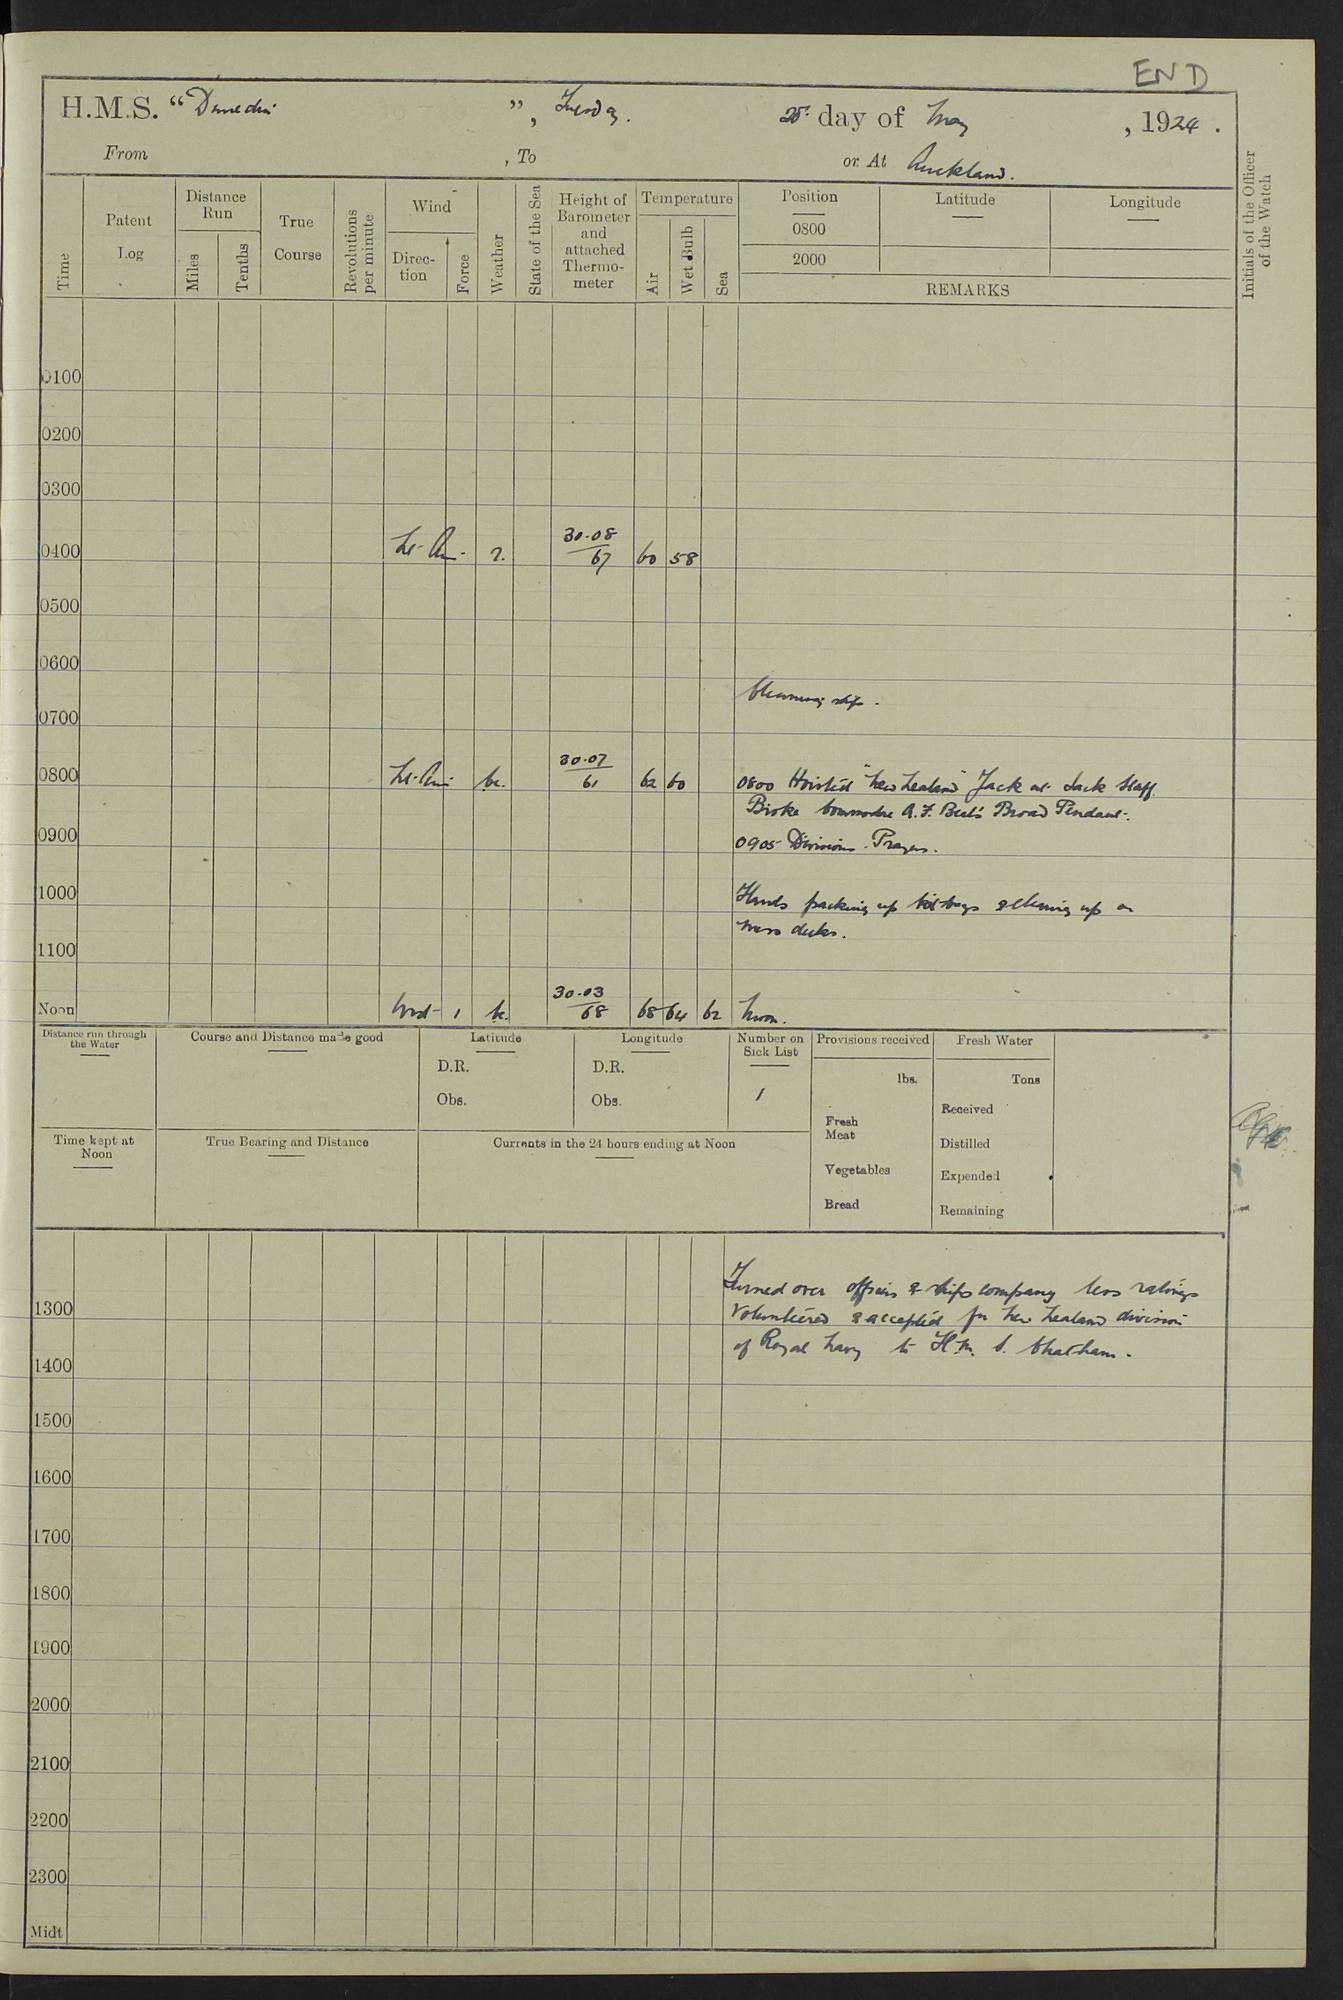 END
H.M.S. “Dunedin”, Tuesday. day of May, 1924.
From , To or At Auckland.
Time
Patent Log
Distance Run
Miles
Tenths
True Course
Revolutions per minute
Wind
Direc-tion
Force
Weather
State of the Sea
Height of Barometer and attached Thermo-meter
Temperature
Air
Wet Bulb
Sea
Position
0800
2000
Latitude
Longitude
REMARKS
Initials of the Officer of the Watch
0100
0200
0300
0400 Lt. Air 30.08/67 60 58
0500
0600
Cleaning ship.
0700
0800 Lt. Air bc. 30.07/61 62 60 0800 Hoisted "New Zealand" Jack at Jack Staff.
Broke Commodore A.F. Beal's Broad Pendant.
0900 0905 Divisions. Prayers.
1000 Hands packing up kit bags & cleaning up on
mess decks.
1100
Noon 1 bc. 30.03/68 68 64 62 Noon.
Distance run through the Water
Course and Distance made good
Latitude
D.R.
Obs.
Longitude
D.R.
Obs.
Number on Sick List
1
Provisions received
lbs.
Fresh Meat
Vegetables
Bread
Fresh Water
Tons
Received
Distilled
Expended
Remaining
Time kept at Noon
True Bearing and Distance
Currents in the 24 hours ending at Noon
Turned over officers & ships company less ratings
1300 volunteered & accepted for New Zealand division
of Royal Navy to H.M.S. Chatham.
1400
1500
1600
1700
1800
1900
2000
2100
2200
2300
Midt